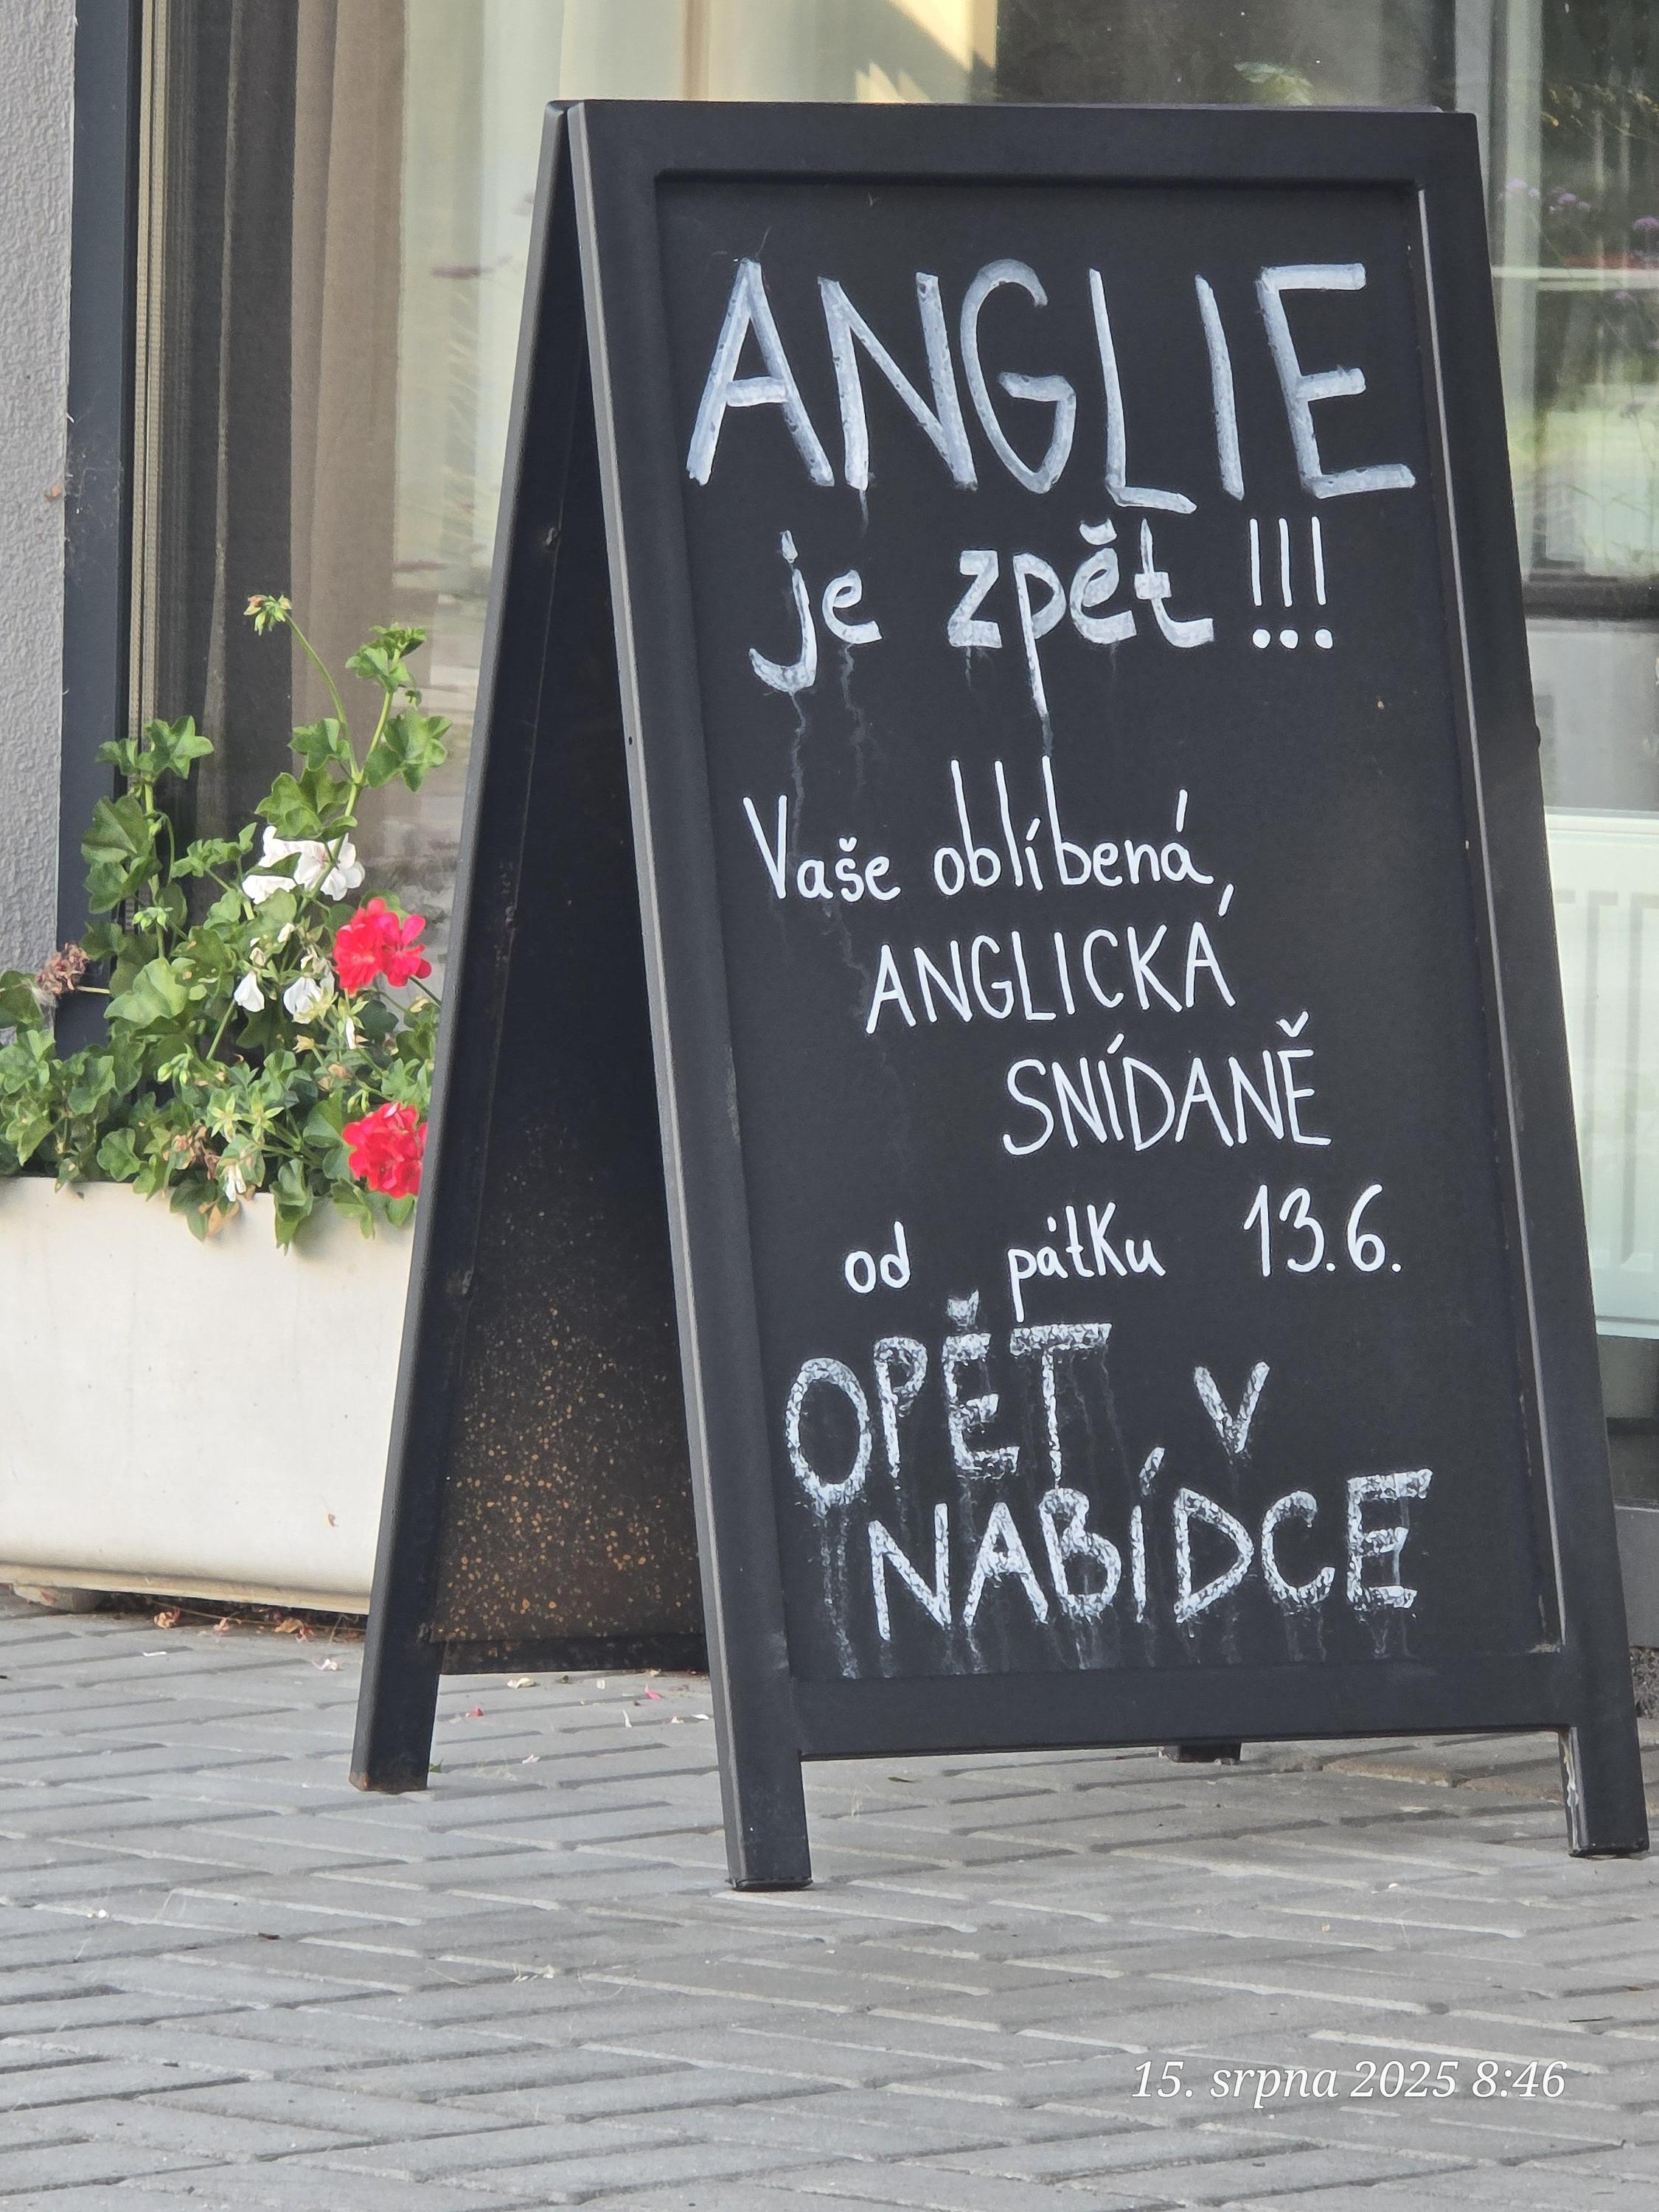 ANGLIE
je zpět !!!
Vaše oblíbená,
ANGLICKÁ
SNÍDANĚ
od pátku 13.6.
OPĚT v
NABÍDCE
15. srpna 2025 8:46